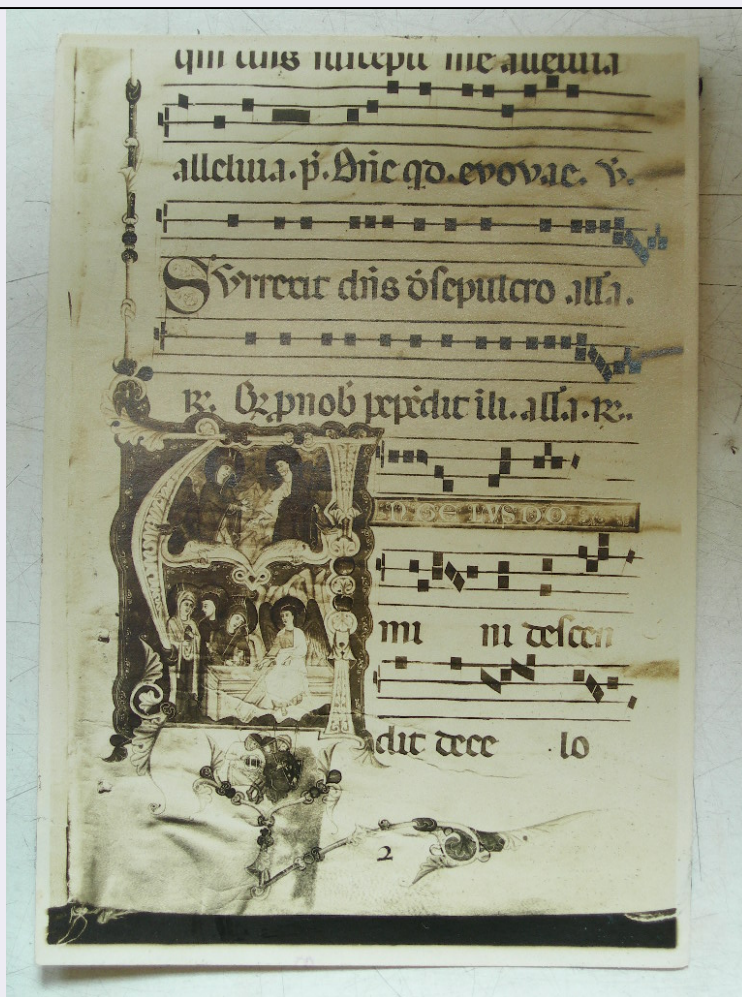 qui dn̄s suscepit me alleluia
alleluia. p̄. Dn̄e qd. evovae. V̄.
Surrexit dn̄s d̄ sepulcro all̄a.
R̄. Q̄ pnob̄ pepēdit ili. all̄a. R̄.
A NGELVS DO
mi ni descen
dit de ce lo
2